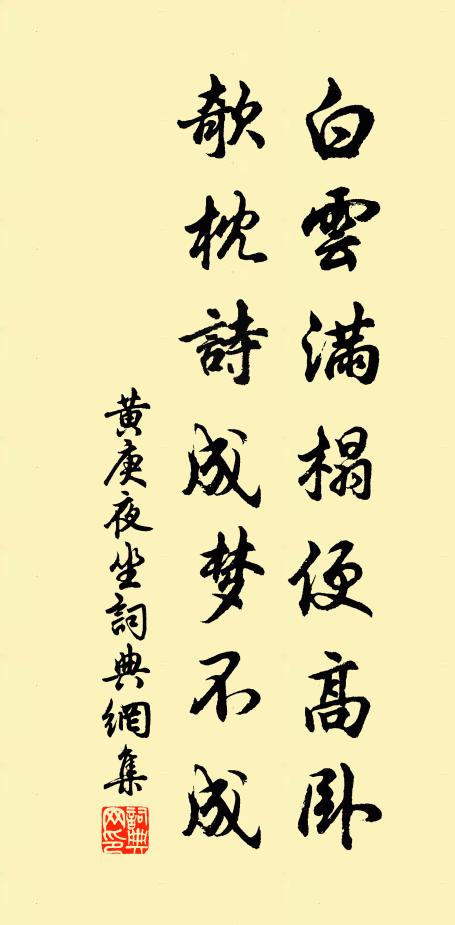 白雲滿榻便高臥
欹枕詩成梦不成
黃庚夜坐詞典網集
詞典网印